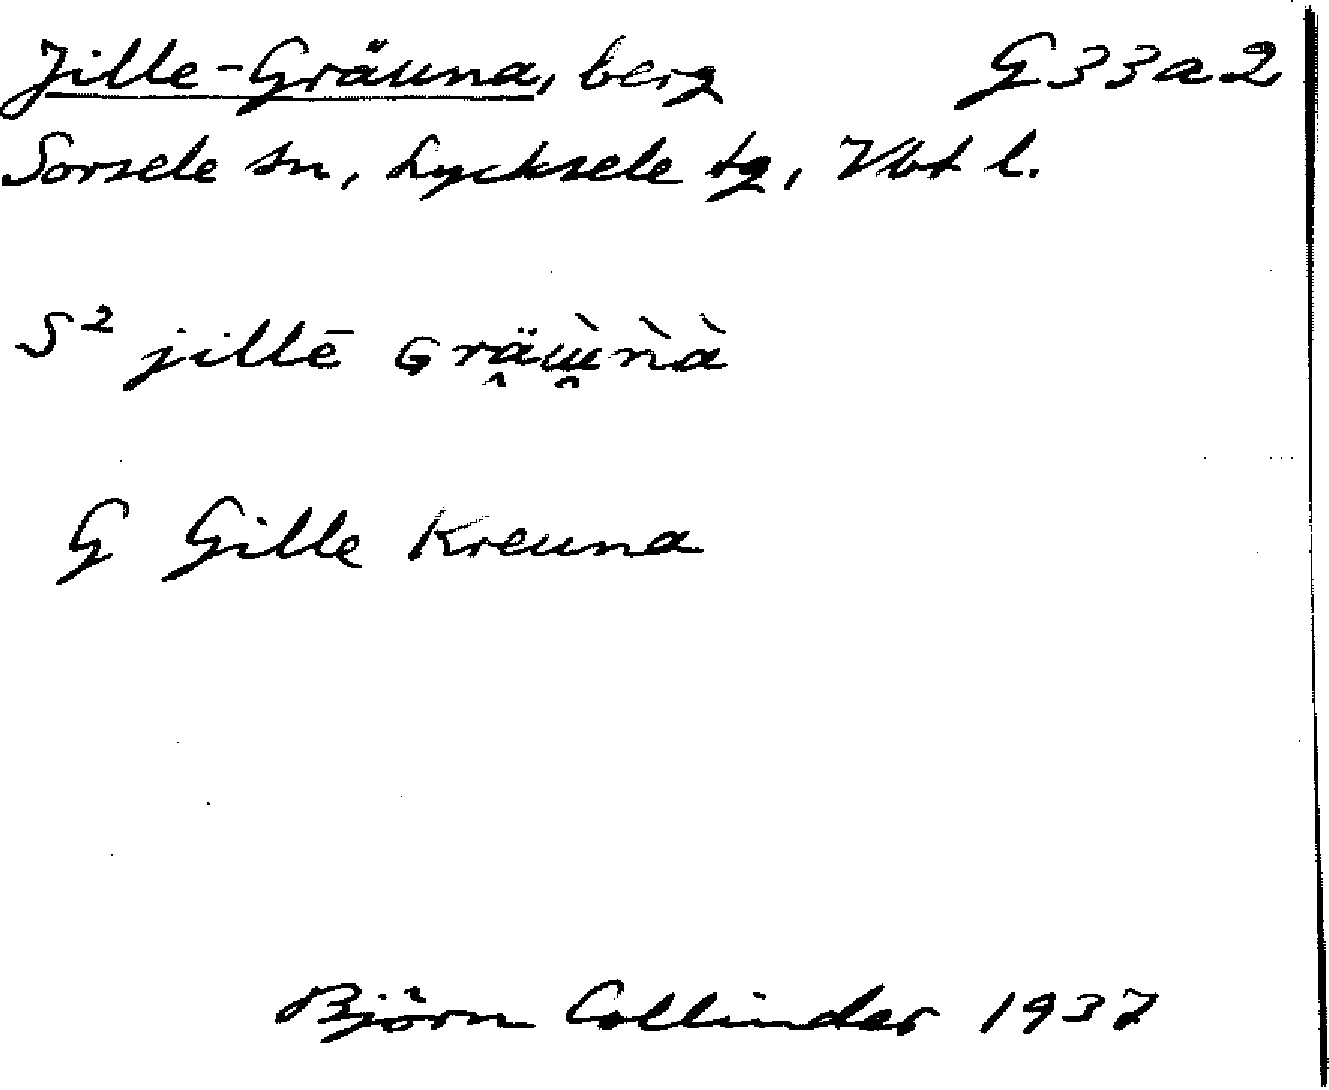 Jille-Gräuna, berg G33a2
Sorsele sn, Lycksele tg, Vbt l.
S² jillē Gräù̯ǹà
G Gille Kreuna
Björn Collinder 1937